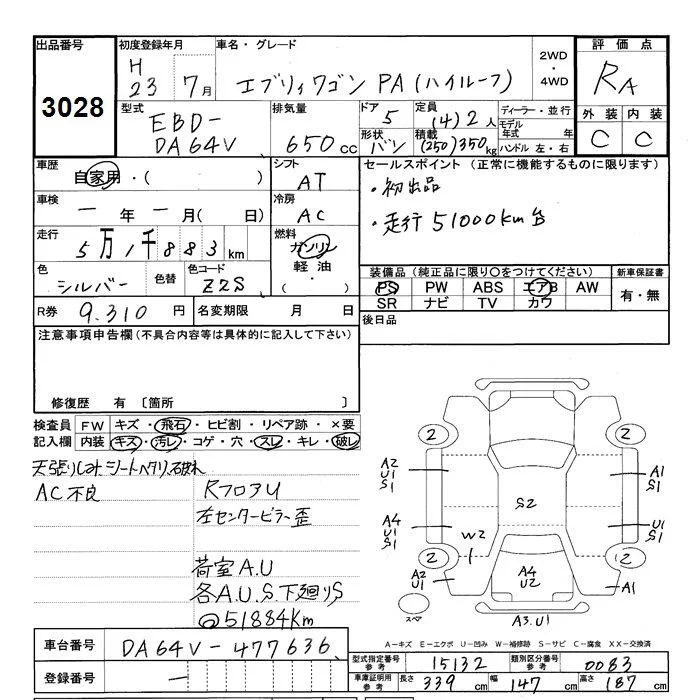 出品番号 初度登録年月 車名・グレード 2WD ・ 4WD 評価点
3028 H 23 7月 エブリィワゴン PA(ハイルーフ) RA
型式 排気量 ドア 5 定員 (4)2人 ディーラー・並行 外装 内装
EBD- DA64V 650cc 形状 バン 積載 (250)350kg モデル年式 年 ハンドル 左・右 C C
車歴 シフト セールスポイント(正常に機能するものに限ります)
自家用・( ) AT ・初出品
車検 冷房
ー年ー月( 日) AC ・走行51000Km台
走行 燃料
5万1千883km ガソリン
色 色替 色コード 軽油 装備品(純正品に限り○をつけてください) 新車保証書
シルバー Z2S ・( ) PS PW ABS エアB AW 有・無
R券 9.310円 名変期限 月 日 SR ナビ TV カワ
注意事項申告欄(不具合内容等は具体的に記入して下さい) 後日品
修復歴 有 〔箇所 〕
検査員 FW キズ・飛石・ヒビ割・リペア跡・×要
記入欄 内装 キズ・汚レ・コゲ・穴・スレ・キレ・破レ
天張りしみ シートヘタリ、破れ
AC不良 RフロアU
左センターピラー歪
荷室A.U
各A.U.S.下廻りS
@51884Km
2 2
A2 U1 S1 A1 S1
S2
A4 U1 S1 U1 S1
W2 1
2 2
A2 U1 A4 U2 A1
スペア A3.U1
A−キズ E−エクボ U−凹み W−補修跡 S−サビ C−腐食 XX−交換済
車台番号 DA64V-477636
型式指定番号 参考 15132 類別区分番号 参考 0083
登録番号 ー
車庫証明用 参考 長さ 339cm 幅 147cm 高さ 187cm